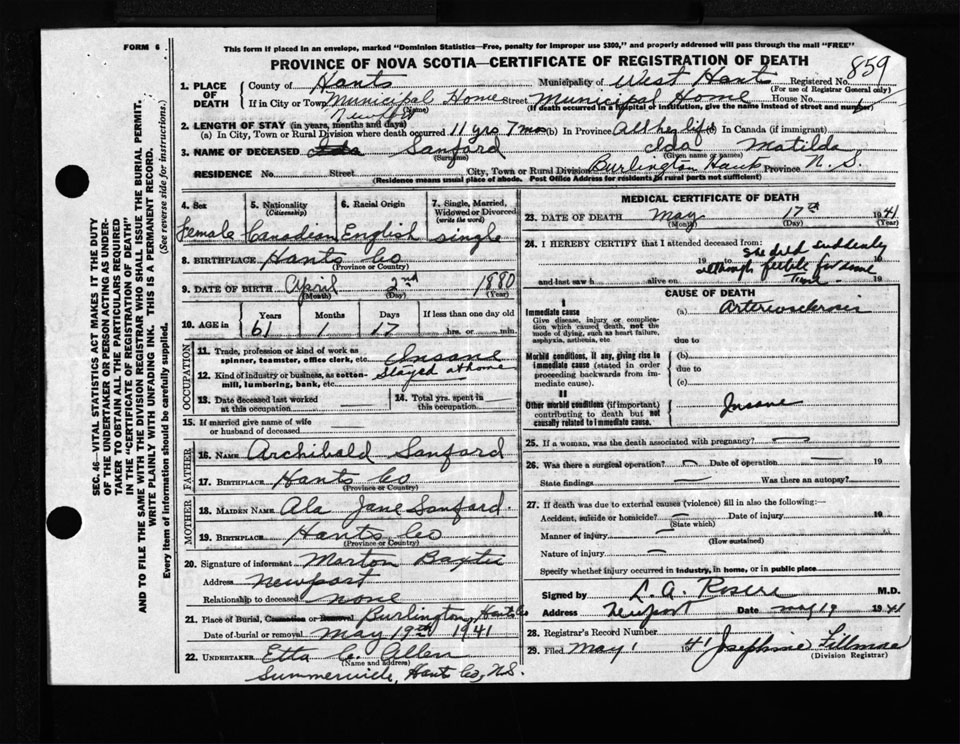 FORM 6
This form if placed in an envelope, marked "Dominion Statistics—Free, penalty for improper use $300," and properly addressed will pass through the mail "FREE"
PROVINCE OF NOVA SCOTIA—CERTIFICATE OF REGISTRATION OF DEATH
859
SEC. 46—VITAL STATISTICS ACT MAKES IT THE DUTY
OF THE UNDERTAKER OR PERSON ACTING AS UNDER-
TAKER TO OBTAIN ALL THE PARTICULARS REQUIRED
IN THE "CERTIFICATE OF REGISTRATION OF DEATH"
AND TO FILE THE SAME WITH THE DIVISION REGISTRAR WHO SHALL ISSUE THE BURIAL PERMIT.
WRITE PLAINLY WITH UNFADING INK. THIS IS A PERMANENT RECORD.
Every item of information should be carefully supplied. (See reverse side for instructions.)
1. PLACE OF DEATH County of Hants Municipality of West Hants Registered No.
(For use of Registrar General only)
If in City or Town Municipal Home Street Municipal Home House No.
(Name) (If death occurred in a hospital or institution, give the name instead of street and number)
Newport
2. LENGTH OF STAY (in years, months and days)
(a) In City, Town or Rural Division where death occurred 11 yrs 7 mos (b) In Province All her life (c) In Canada (if immigrant)
3. NAME OF DECEASED Ida Sanford Ida Matilda
(Surname) (Given name or names)
RESIDENCE No. Street City, Town or Rural Division Burlington Hants Province N. S.
(Residence means usual place of abode. Post Office Address for residents in rural parts not sufficient)
4. Sex Female
5. Nationality (Citizenship) Canadian
6. Racial Origin English
7. Single, Married, Widowed or Divorced (write the word) single
8. BIRTHPLACE Hants Co
(Province or Country)
9. DATE OF BIRTH April 2nd 1880
(Month) (Day) (Year)
10. AGE in Years Months Days If less than one day old
61 1 17 hrs. or min.
OCCUPATION
11. Trade, profession or kind of work as spinner, teamster, office clerk, etc. Insane
12. Kind of industry or business, as cotton-mill, lumbering, bank, etc. Stayed at home
13. Date deceased last worked at this occupation
14. Total yrs. spent in this occupation
15. If married give name of wife or husband of deceased
FATHER
16. NAME Archibald Sanford
17. BIRTHPLACE Hants Co
(Province or Country)
MOTHER
18. MAIDEN NAME Ala Jane Sanford.
19. BIRTHPLACE Hants Co
(Province or Country)
20. Signature of informant Morton Baxter
Address Newport
Relationship to deceased none
21. Place of Burial, Cremation or Removal Burlington, Hants Co
Date of burial or removal May 19th 1941
22. UNDERTAKER Etta C. Allen
(Name and address)
Summerville, Hant Co, N.S.
MEDICAL CERTIFICATE OF DEATH
23. DATE OF DEATH May 17th 1941
(Month) (Day) (Year)
24. I HEREBY CERTIFY that I attended deceased from:
She died suddenly
19 to 19
although feeble for some
and last saw h alive on time 19
CAUSE OF DEATH
I
Immediate cause
Give disease, injury or complication which caused death, not the mode of dying, such as heart failure, asphyxia, asthenia, etc
(a) Arteriosclerosis
due to
Morbid conditions, if any, giving rise to immediate cause (stated in order proceeding backwards from immediate cause).
(b)
due to
(c)
II
Other morbid conditions (if important) contributing to death but not causally related to immediate cause.
Insane
25. If a woman, was the death associated with pregnancy?
26. Was there a surgical operation? Date of operation 19
State findings Was there an autopsy?
27. If death was due to external causes (violence) fill in also the following:—
Accident, suicide or homicide? Date of injury 19
(State which)
Manner of injury
(How sustained)
Nature of injury
Specify whether injury occurred in industry, in home, or in public place
Signed by L. A. M.D.
Address Newport Date May 19 1941
28. Registrar's Record Number
29. Filed May 1941 Josephine Fillmore
(Division Registrar)